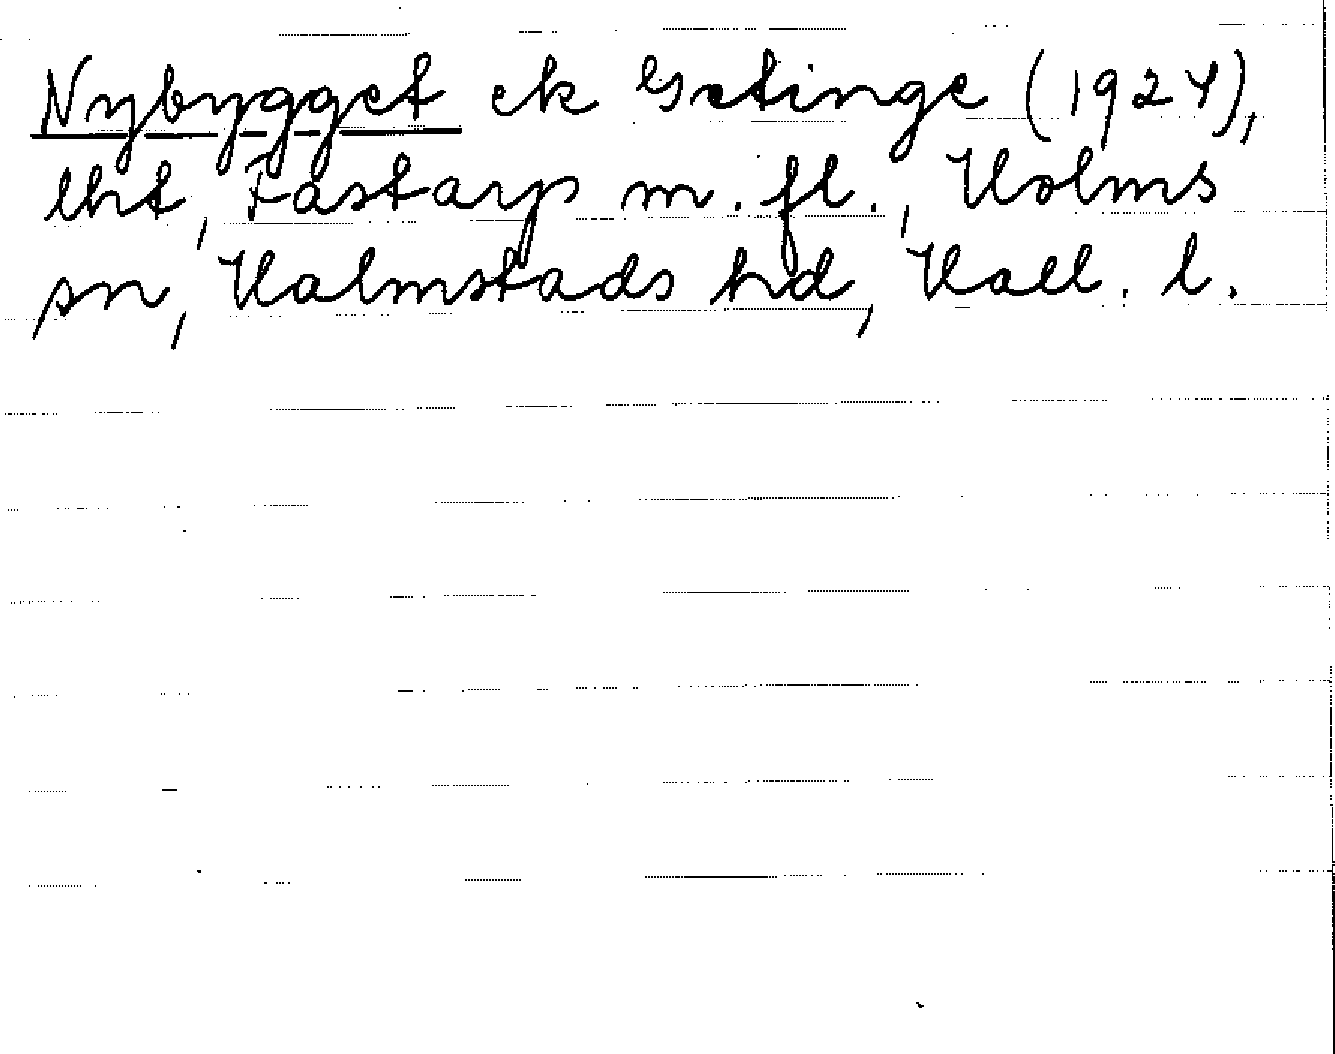 Nybygget ek Getinge (1924),
lht, Fastarp m. fl., Holms
sn, Halmstads hd, Hall. l.